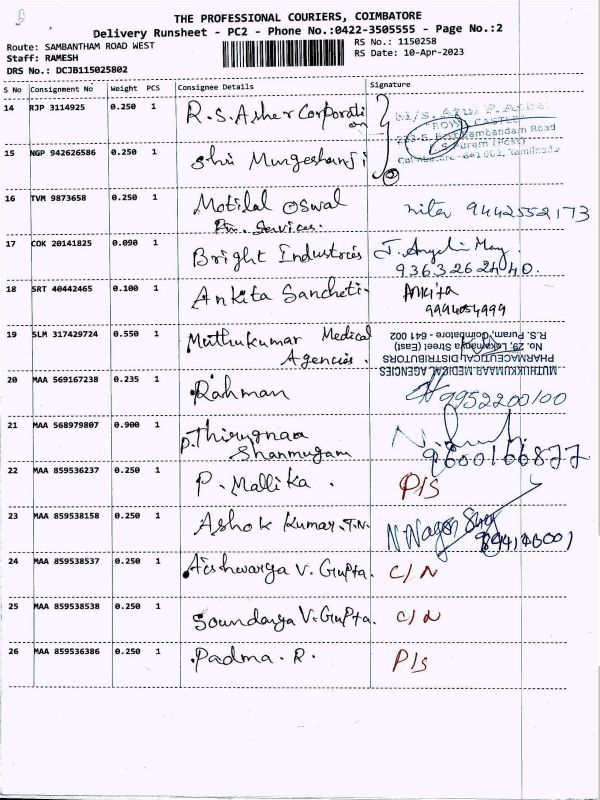 THE PROFESSIONAL COURIERS, COIMBATORE
Delivery Runsheet - PC2 - Phone No.:0422-3505555 - Page No.:2
Route: SAMBANTHAM ROAD WEST
RS No.: 1150258
Staff: RAMESH
RS Date: 10-Apr-2023
DRS No.: DCJB115025802
S No Consignment No Weight PCS Consignee Details Signature
14 RJP 3114925 0.250 1 R.S. Asher Corporation
M/s. P. Asher
"ROYAL CASTLE"
Road
Coimbatore - 641 002, Tamilnadu
15 NGP 942626586 0.250 1 Shri Murgeshanji
16 TVM 9873658 0.250 1 Motilal Oswal
Fin. Services. 9442552173
17 COK 20141825 0.090 1 Bright Industries J. Angeli May
9363262440.
18 SRT 40442465 0.100 1 Ankita Sancheti. Ankita
9994054999
19 SLM 317429724 0.550 1 Muthukumar Medical
Agencies.
MUTHUKUMAAR MEDICAL AGENCIES
PHARMACEUTICAL DISTRIBUTORS
No. 29, Lokamanya Street (East)
R.S. Puram, Coimbatore - 641 002
20 MAA 569167238 0.235 1 Rahman 9952200100
21 MAA 568979807 0.900 1 P. Thirugnaa
Shanmugam 9600166877
22 MAA 859536237 0.250 1 P. Mallika. P/S
23 MAA 859538158 0.250 1 Ashok Kumar.T.N.
24 MAA 859538537 0.250 1 Aishwarya V. Gupta. C/N
25 MAA 859538538 0.250 1 Soundarya V. Gupta. C/N
26 MAA 859536386 0.250 1 Padma. R. P/S